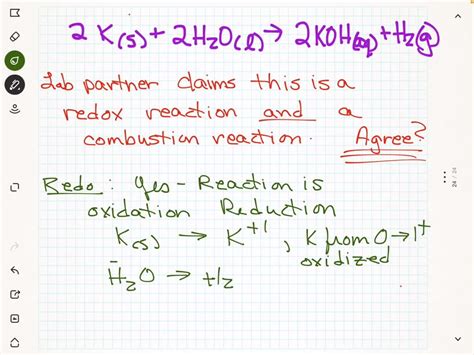 2 K(s) + 2H2O(l) → 2KOH(aq) + H2(g)
Lab partner claims this is a
redox reaction and a
combustion reaction. Agree?
Redo: Yes - Reaction is
oxidation Reduction
K(s) → K+1, K from 0→1+
oxidized
H2O → H2
24 / 24